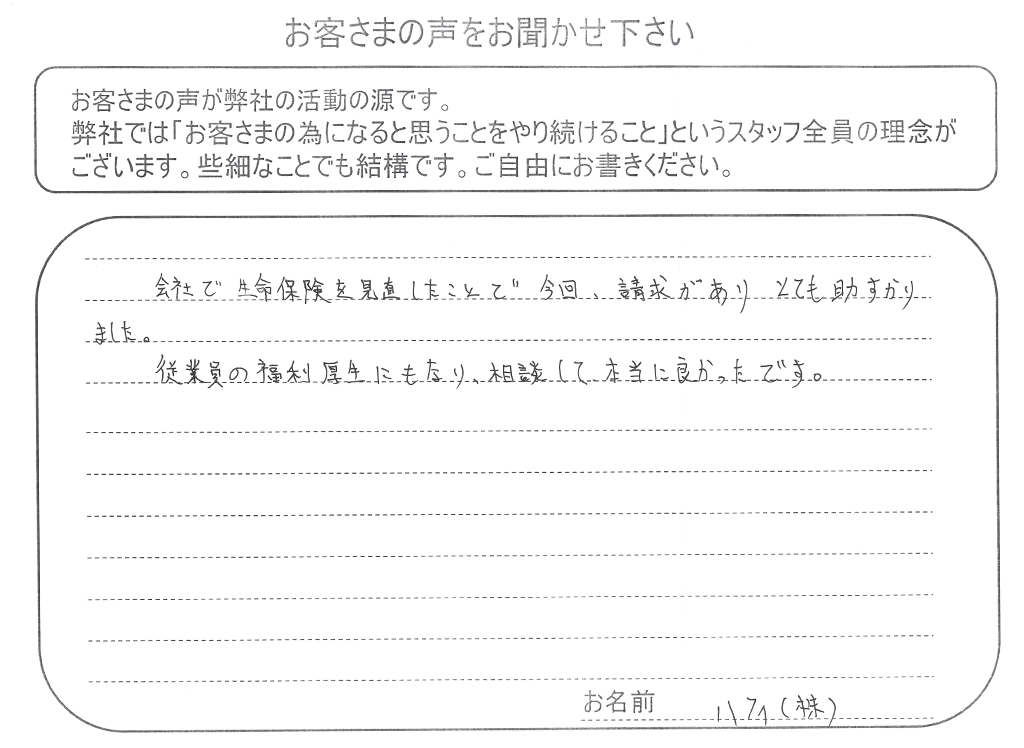 お客さまの声をお聞かせ下さい
お客さまの声が弊社の活動の源です。
弊社では「お客さまの為になると思うことをやり続けること」というスタッフ全員の理念が
ございます。些細なことでも結構です。ご自由にお書きください。
会社で生命保険を見直したことで今回、請求がありとても助すかり
ました。
従業員の福利厚生にもなり、相談して本当に良かったです。
お名前 (株)